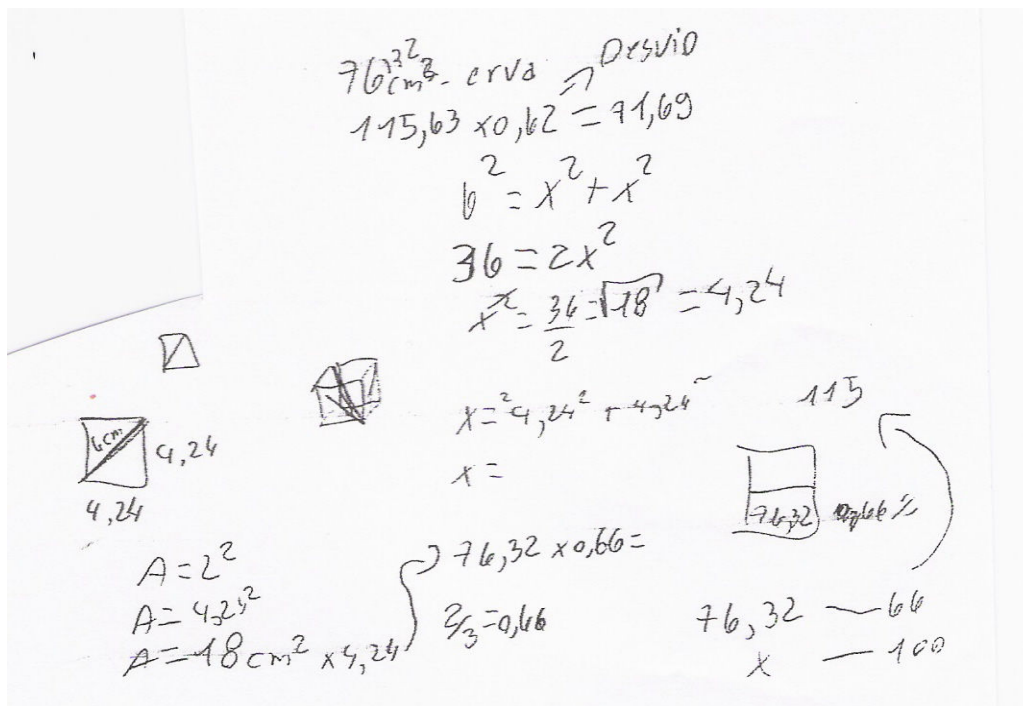 76,32 cm³ - erva → Desvio
115,63 x 0,62 = 71,69
6² = x² + x²
36 = 2x²
x² = 36/2 = √18 = 4,24
x² = 4,24² + 4,24²
x =
115
6cm 4,24
4,24
76,32 0,66%
A = L²
A = 4,24²
A = 18cm² x 4,24
76,32 x 0,66 =
2/3 = 0,66
76,32 — 66
x — 100